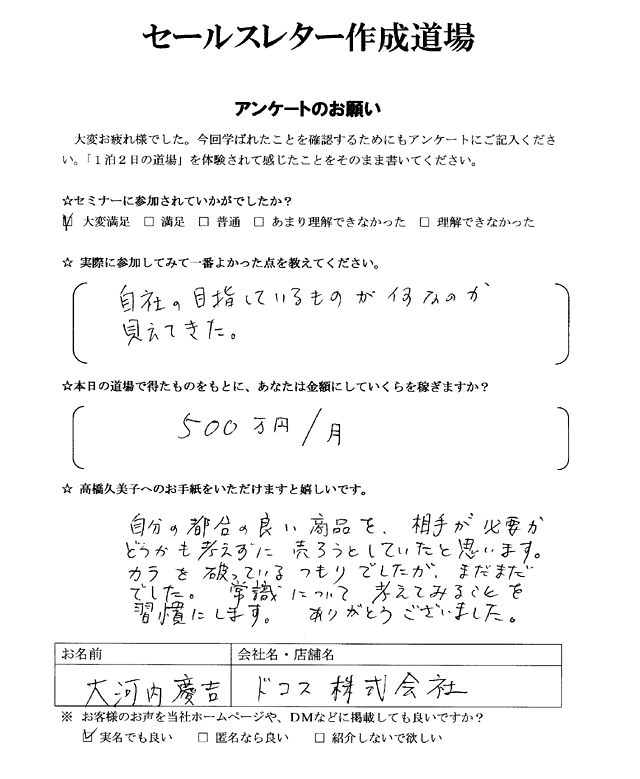 セールスレター作成道場
アンケートのお願い
大変お疲れ様でした。今回学ばれたことを確認するためにもアンケートにご記入くださ
い。「1泊2日の道場」を体験されて感じたことをそのまま書いてください。
☆セミナーに参加されていかがでしたか?
☑ 大変満足 □ 満足 □ 普通 □ あまり理解できなかった □ 理解できなかった
☆ 実際に参加してみて一番よかった点を教えてください。
自社の目指しているものが何なのか
見えてきた。
☆本日の道場で得たものをもとに、あなたは金額にしていくらを稼ぎますか?
500万円/月
☆ 高橋久美子へのお手紙をいただけますと嬉しいです。
自分の都合の良い商品を、相手が必要か
どうかも考えずに売ろうとしていたと思います。
カラを破っているつもりでしたが、まだまだ
でした。常識について考えてみることを
習慣にします。ありがとうございました。
お名前 会社名・店舗名
大河内慶吉 ドコス株式会社
※ お客様のお声を当社ホームページや、DMなどに掲載しても良いですか?
☑ 実名でも良い □ 匿名なら良い □ 紹介しないで欲しい